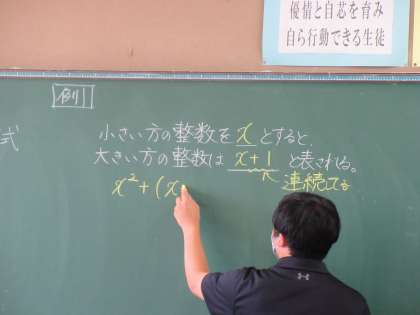 優情と自芯を育み
自ら行動できる生徒
例1
式
小さい方の整数を x とすると、
大きい方の整数は x+1 と表される。
x²+(x
連続してる